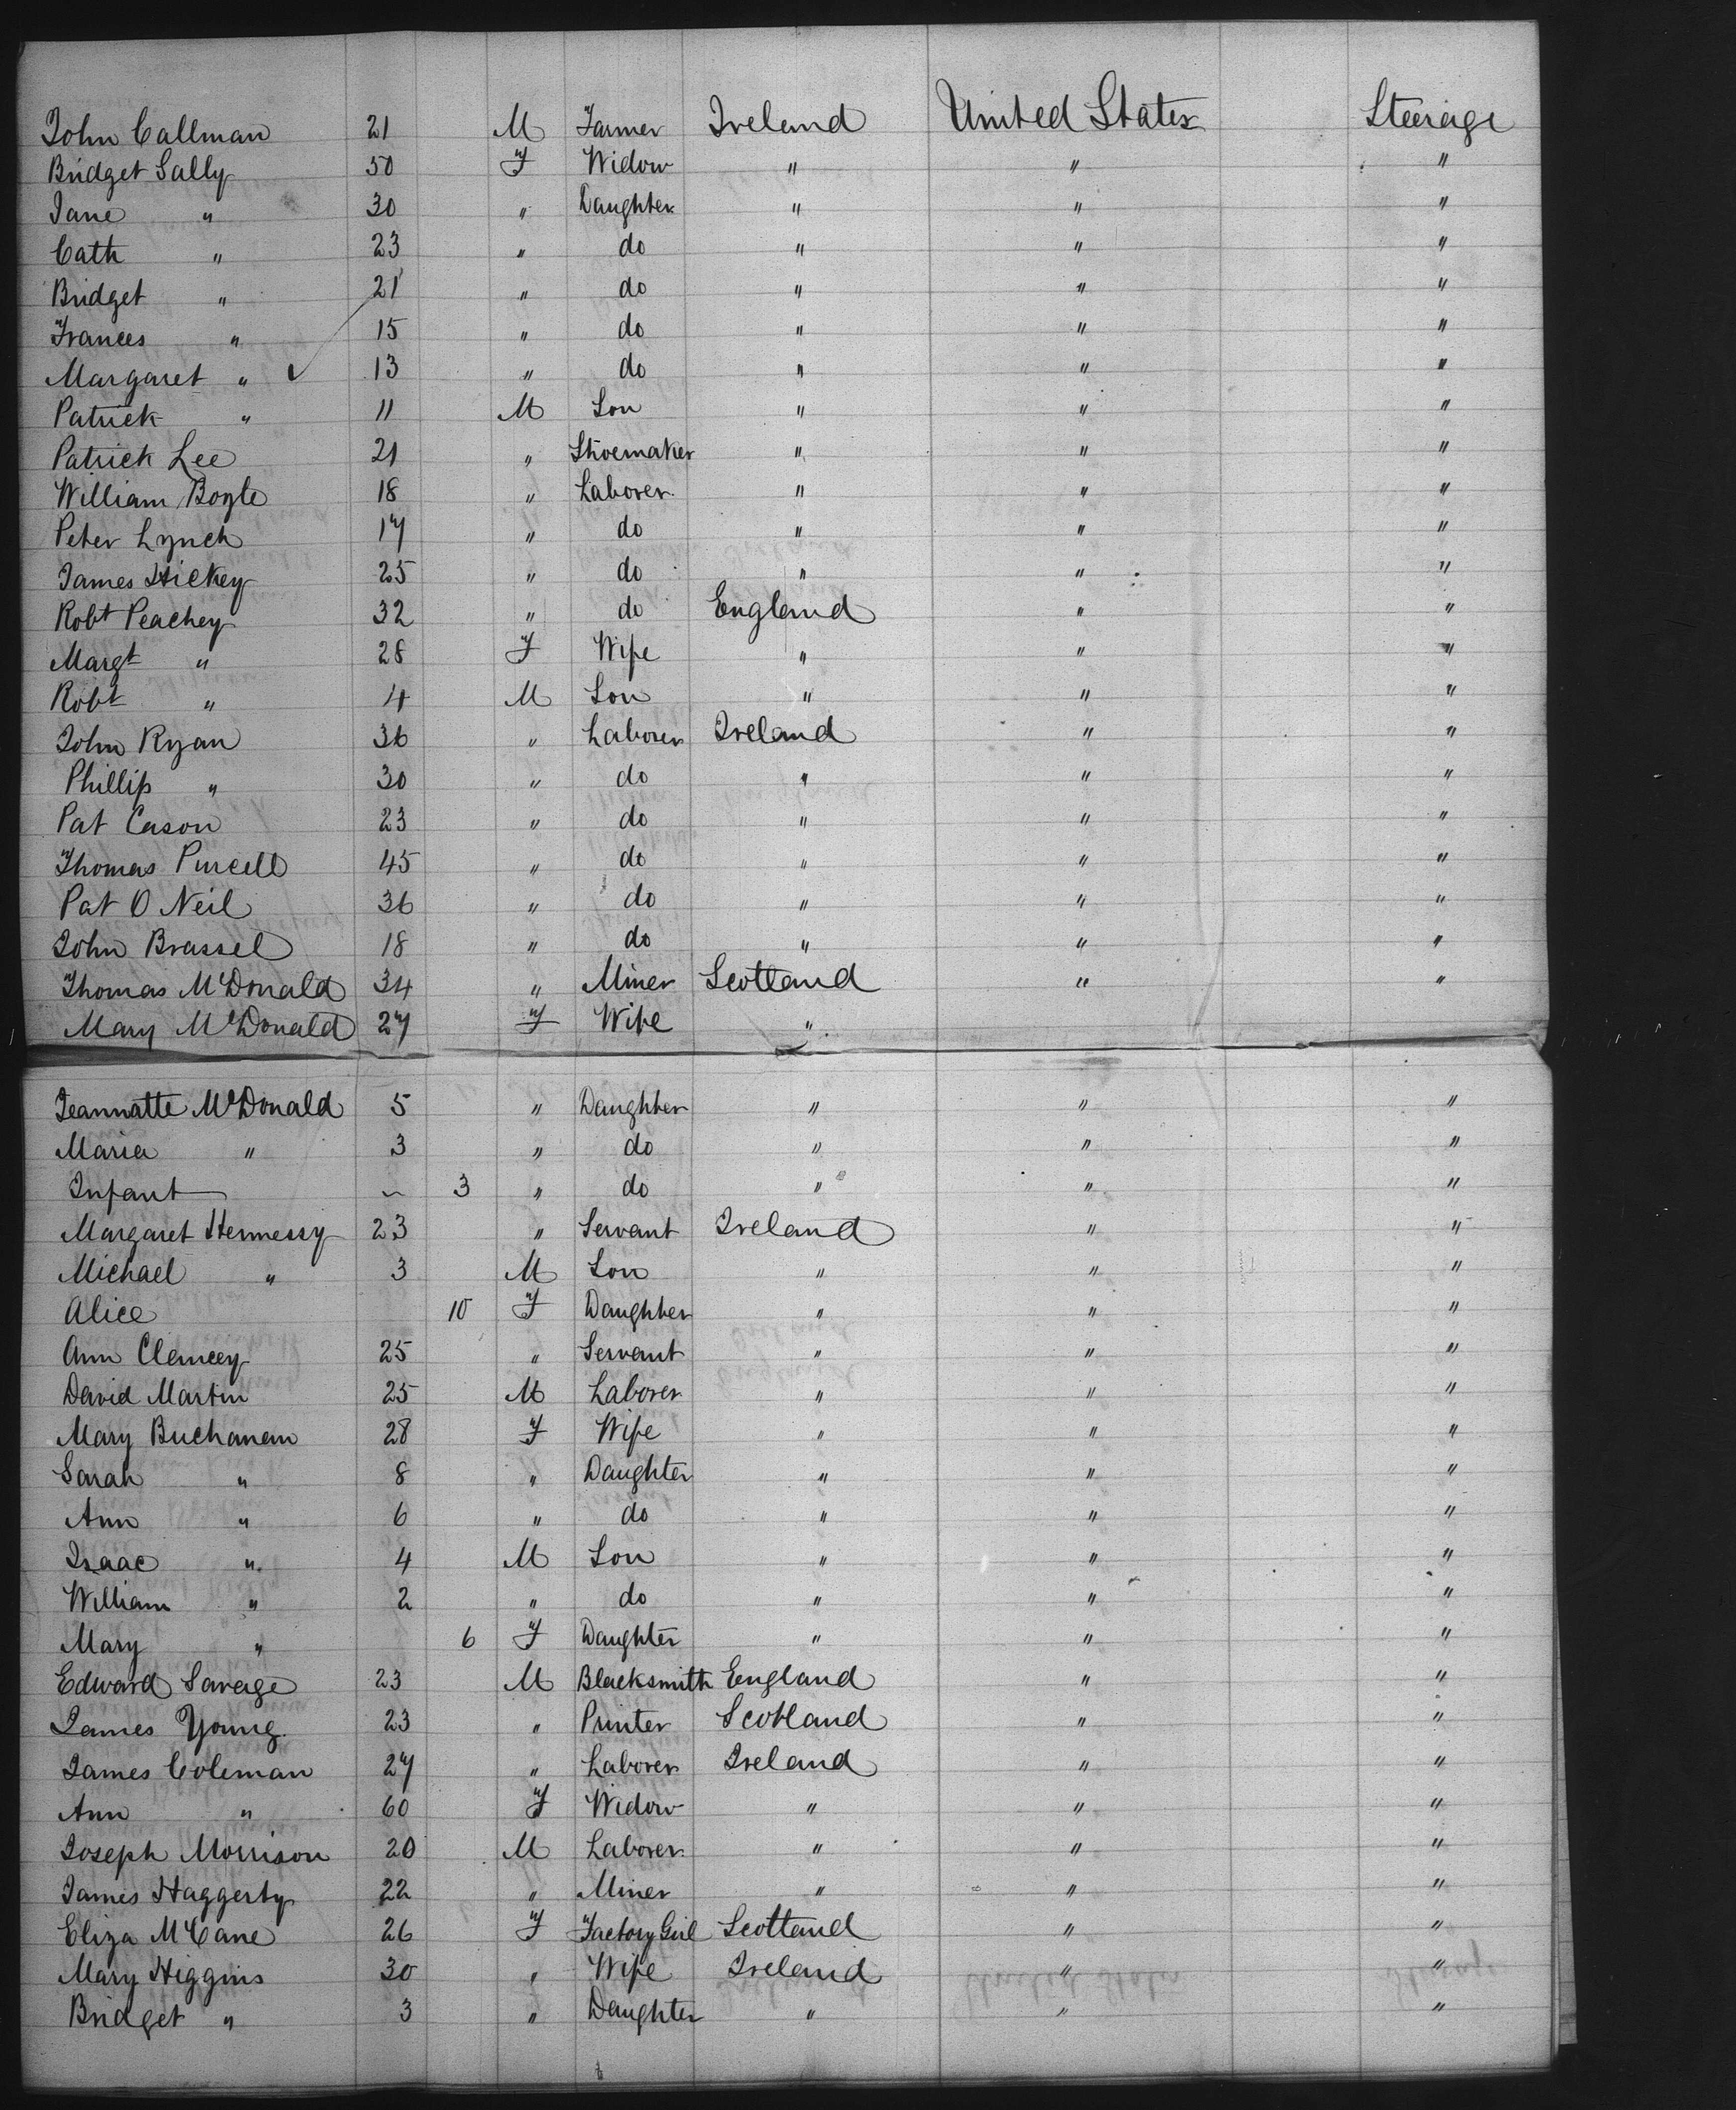 John Callman 21 M Farmer Ireland United States Steerage
Bridget Sally 50 F Widow " " "
Jane " 30 " Daughter " " "
Cath " 23 " do " " "
Bridget " 21 " do " " "
Frances " 15 " do " " "
Margaret " ✓ 13 " do " " "
Patrick " 11 M Son " " "
Patrick Lee 21 " Shoemaker " " "
William Boyle 18 " Laborer " " "
Peter Lynch 17 " do " " "
James Hickey 25 " do " " "
Robt Peachey 32 " do England " "
Margt " 28 F Wife " " "
Robt " 4 M Son " " "
John Ryan 36 " Laborer Ireland " "
Phillip " 30 " do " " "
Pat Cason 23 " do " " "
Thomas Purcell 45 " do " " "
Pat O Neil 36 " do " " "
John Brassel 18 " do " " "
Thomas McDonald 34 " Miner Scotland " "
Mary McDonald 27 F Wife "
Jeannatte McDonald 5 " Daughter " " "
Maria " 3 " do " " "
Infant 3 " do " " "
Margaret Hennessy 23 " Servant Ireland " "
Michael " 3 M Son " " "
Alice 10 F Daughter " " "
Ann Clemcey 25 " Servant " " "
David Martin 25 M Laborer " " "
Mary Buchanan 28 F Wife " " "
Sarah " 8 " Daughter " " "
Ann " 6 " do " " "
Isaac " 4 M Son " " "
William " 2 " do " " "
Mary " 6 F Daughter " " "
Edward Savage 23 M Blacksmith England " "
James Young 23 " Printer Scotland " "
James Coleman 27 " Laborer Ireland " "
Ann " 60 F Widow " " "
Joseph Morrison 20 M Laborer " " "
James Haggerty 22 " Miner " " "
Eliza McCane 26 F Factory Girl Scotland " "
Mary Higgins 30 " Wife Ireland " "
Bridget " 3 " Daughter " " "